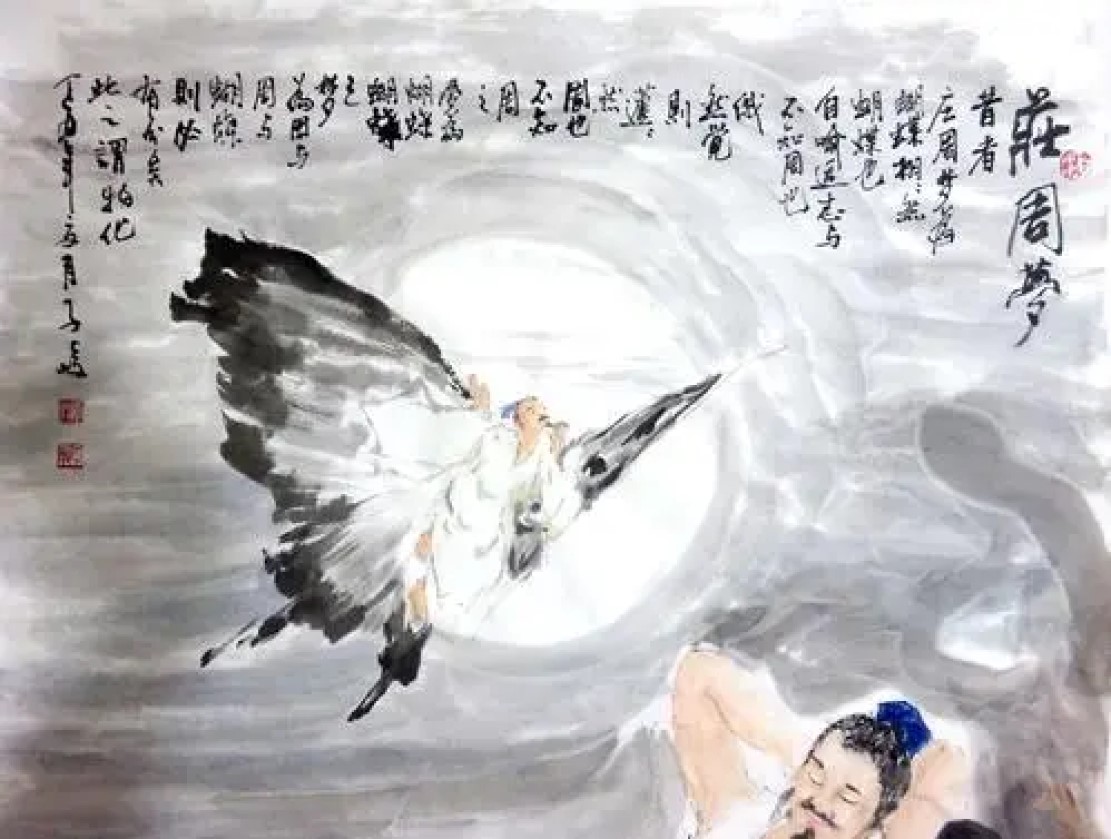 莊周夢
昔者
庄周梦為
蝴蝶栩〻然
蝴蝶也
自喻适志与
不知周也
俄
然觉
則
蘧〻
然
周也
不知
周
之
梦為
蝴蝶
蝴蝶
之
梦
為周与
周与
蝴蝶
則必
有分矣
此之謂物化
丁酉年